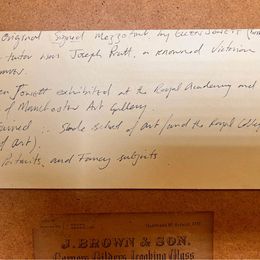 Original Signed Mezzotint by Ellen Jowett
tutor was Joseph Pratt, a renowned Victorian
Jowett exhibited at the Royal Academy and
of Manchester Art Gallery.
:- Slade School of Art / and the Royal College
of Art).
Portraits, and Fancy subjects
J. BROWN & SON,
Carvers, Gilders, Looking Glass